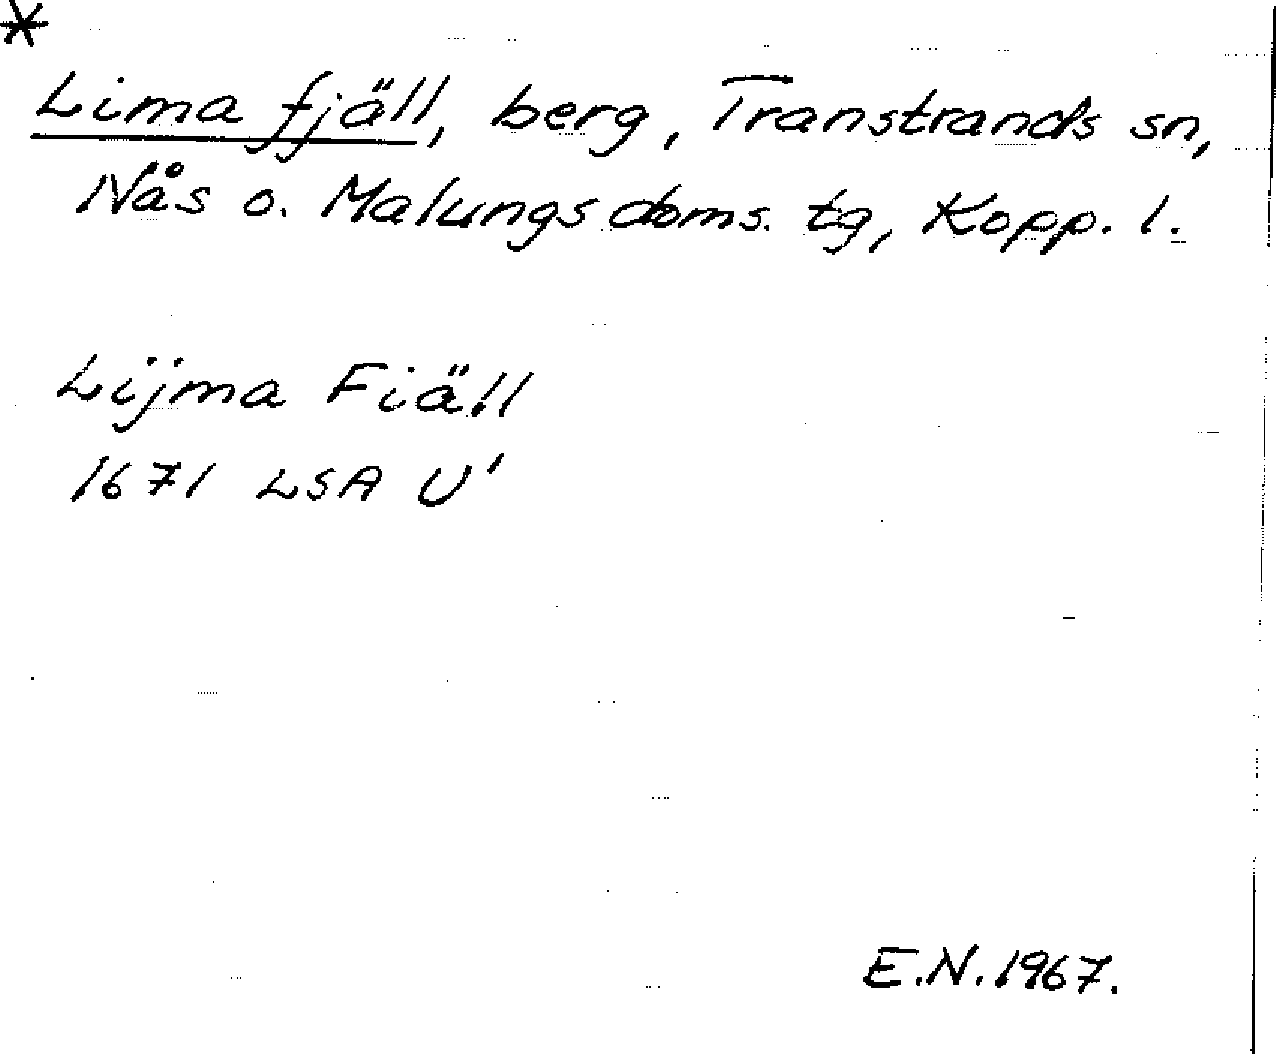 *
Lima fjäll, berg, Transtrands sn,
Nås o. Malungs doms. tg, Kopp. l.
Lijma Fiäll
1671 LSA U'
E.N. 1967.